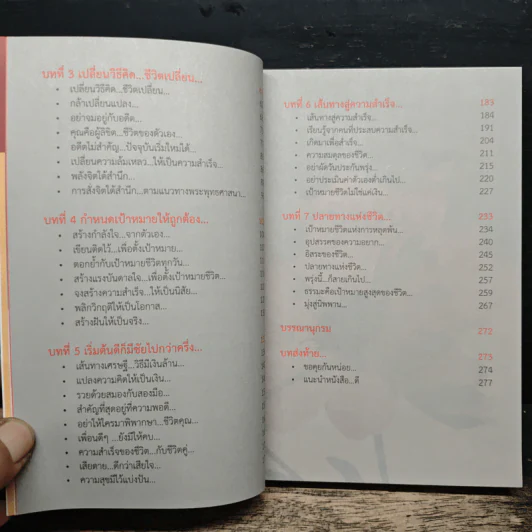 บทที่ 3 เปลี่ยนวิธีคิด...ชีวิตเปลี่ยน...
• เปลี่ยนวิธีคิด...ชีวิตเปลี่ยน...
• กล้าเปลี่ยนแปลง...
• อย่าจมอยู่กับอดีต...
• คุณคือผู้ลิขิต...ชีวิตของตัวเอง...
• อดีตไม่สำคัญ...ปัจจุบันเริ่มใหม่ได้...
• เปลี่ยนความล้มเหลว...ให้เป็นความสำเร็จ...
• พลังจิตใต้สำนึก...
• การสั่งจิตใต้สำนึก...ตามแนวทางพระพุทธศาสนา...
บทที่ 4 กำหนดเป้าหมายให้ถูกต้อง...
• สร้างกำลังใจ...จากตัวเอง...
• เขียนติดไว้...เพื่อตั้งเป้าหมาย...
• ตอกย้ำกับเป้าหมายชีวิตทุกวัน...
• สร้างแรงบันดาลใจ...เพื่อตั้งเป้าหมายชีวิต...
• จงสร้างความสำเร็จ...ให้เป็นนิสัย...
• พลิกวิกฤตให้เป็นโอกาส...
• สร้างฝันให้เป็นจริง...
บทที่ 5 เริ่มต้นดีก็มีชัยไปกว่าครึ่ง...
• เส้นทางเศรษฐี...วิธีมีเงินล้าน...
• แปลงความคิดให้เป็นเงิน...
• รวยด้วยสมองกับสองมือ...
• สำคัญที่สุดอยู่ที่ความพอดี...
• อย่าให้ใครมาพิพากษา...ชีวิตคุณ...
• เพื่อนดีๆ ...ยังมีให้คบ...
• ความสำเร็จของชีวิต...กับชีวิตคู่...
• เสียดาย...ดีกว่าเสียใจ...
• ความสุขมีไว้แบ่งปัน...
บทที่ 6 เส้นทางสู่ความสำเร็จ... 183
• เส้นทางสู่ความสำเร็จ... 184
• เรียนรู้จากคนที่ประสบความสำเร็จ... 191
• เกิดมาเพื่อสู้... 204
• ความสมดุลของชีวิต... 211
• อย่าผัดวันประกันพรุ่ง... 215
• อย่าประเมินค่าตัวเองต่ำเกินไป... 220
• เป้าหมายชีวิตไม่ใช่แค่เงิน... 227
บทที่ 7 ปลายทางแห่งชีวิต... 233
• เป้าหมายชีวิตแห่งการหลุดพ้น... 234
• อุปสรรคของความอยาก... 240
• อิสระของชีวิต... 245
• ปลายทางแห่งชีวิต... 252
• พรุ่งนี้...ก็สายเกินไป... 257
• ธรรมะคือเป้าหมายสูงสุดของชีวิต... 259
• มุ่งสู่นิพพาน... 267
บรรณานุกรม 272
บทส่งท้าย... 273
• ขอคุยกันหน่อย... 274
• แนะนำหนังสือ...ดี 277